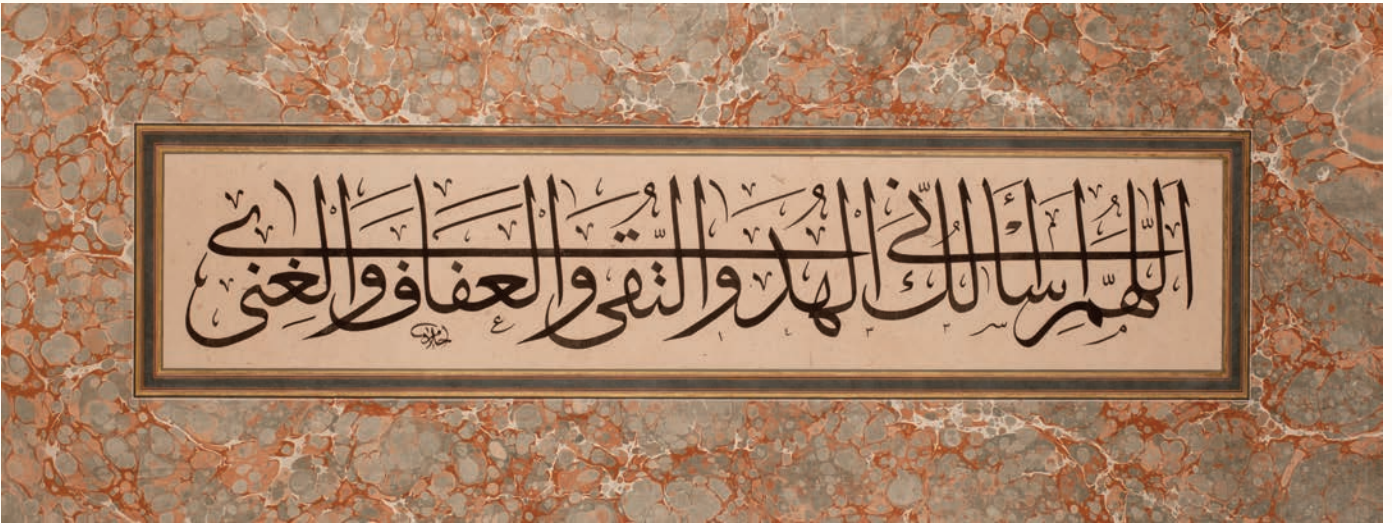 اَللّٰهُمَّ اِنِّي أَسْأَلُكَ الْهُدٰى وَالتُّقٰى وَالْعَفَافَ وَالْغِنٰى
١٤٣٢